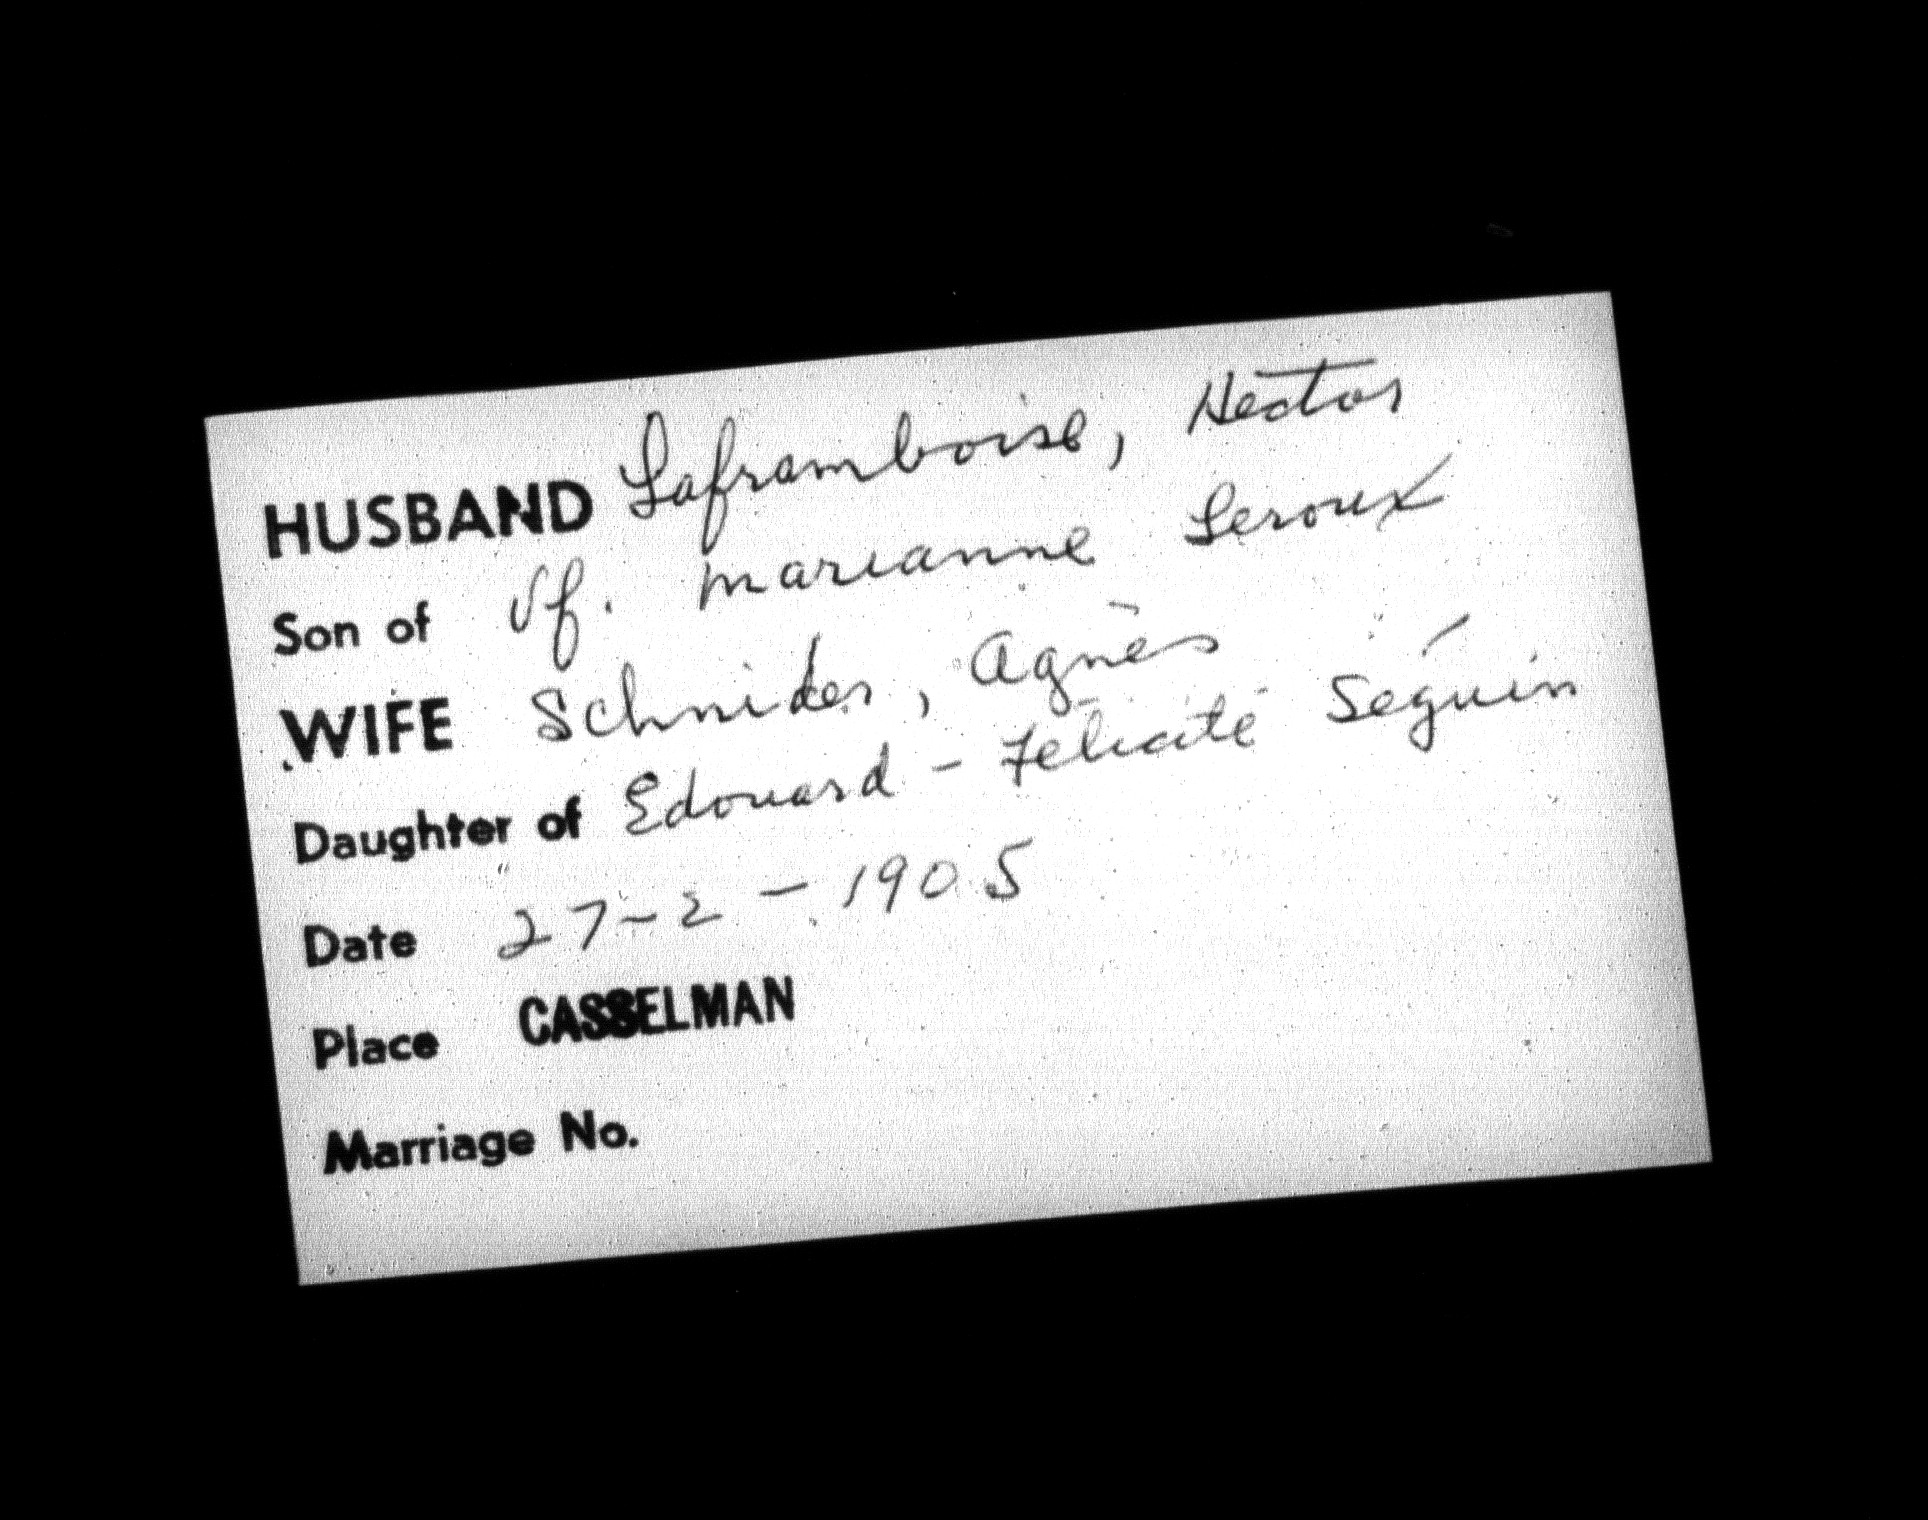 HUSBAND Laframboise, Hector
Son of Vf. Marianne Leroux
WIFE Schnider, Agnès
Daughter of Edouard - Félicité Séguin
Date 27-2-1905
Place CASSELMAN
Marriage No.